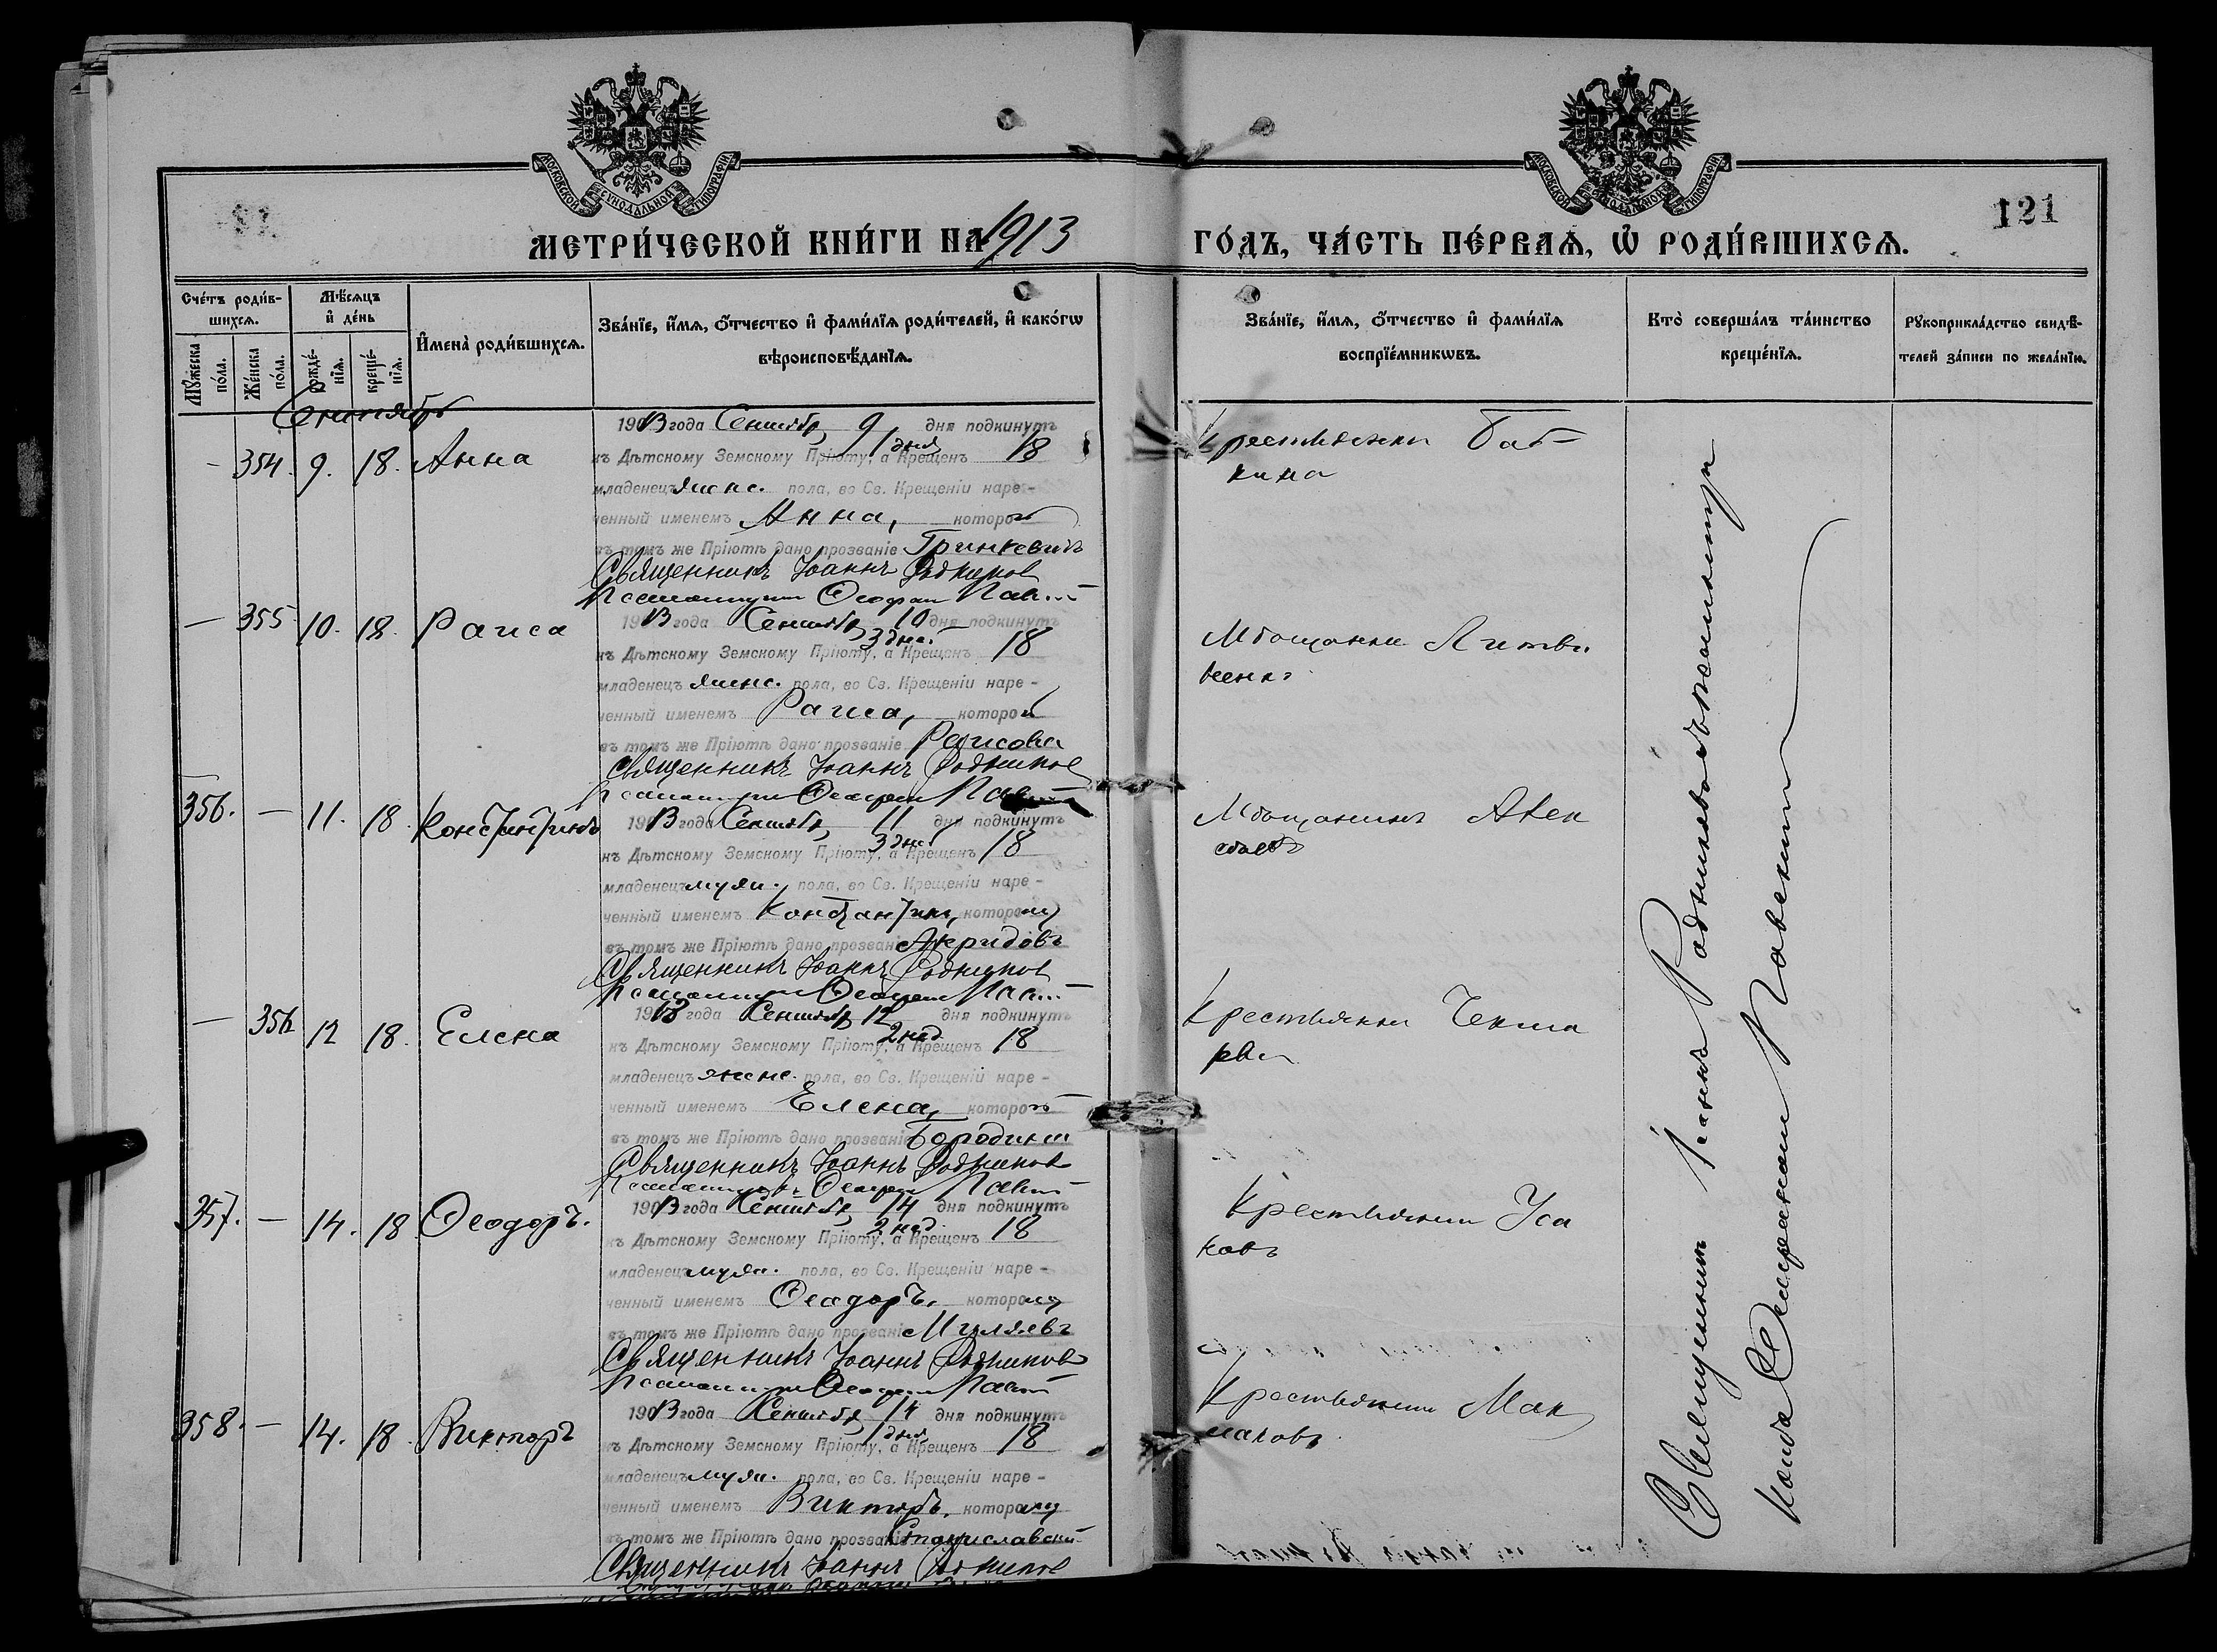 МОСКОВСКОЙ СѴНОДАЛЬНОЙ ТИПОГРАФІИ
МОСКОВСКОЙ СѴНОДАЛЬНОЙ ТИПОГРАФІИ
121
МЕТРИ́ЧЕСКОЙ КНИ́ГИ НА 1913
ГО́ДЪ, ЧА́СТЬ ПЕ́РВАѦ, Ѡ҆ РОДИ́ВШИХСѦ.
Сче́тъ роди́в-
шихсѧ.
Мꙋ́жеска по́ла.
Же́нска по́ла.
Мѣ́сѧцъ
и҆ де́нь
рожде́-
нїѧ.
креще́-
нїѧ.
И҆мена̀ роди́вшихсѧ.
Зва́нїе, и҆́мѧ, ѻ҆́тчество и҆ фами́лїѧ роди́телей, и҆ како́гѡ
вѣроисповѣ́данїѧ.
Зва́нїе, и҆́мѧ, ѻ҆́тчество и҆ фами́лїѧ
воспрїе́мникѡвъ.
Кто̀ соверша́лъ та́инство
креще́нїѧ.
Рꙋкоприкла́дство свидѣ́-
телей за́писи по жела́нїю.
Сентябрь
— 354. 9. 18. Анна
1913 года Сентября 9 дня подкинутъ
1 дня
къ Дѣтскому Земскому Пріюту, а Крещенъ 18
младенецъ женс. пола, во Св. Крещеніи наре-
ченный именемъ Анна, которой
въ томъ же Пріютѣ дано прозваніе Гринкевичъ
Священникъ Іоаннъ Родниковъ
Крестьянка Баб-
кина
— 355 10. 18. Раиса
1913 года Сентября 10 дня подкинутъ
3 дней
къ Дѣтскому Земскому Пріюту, а Крещенъ 18
младенецъ женс. пола, во Св. Крещеніи наре-
ченный именемъ Раиса, которой
въ томъ же Пріютѣ дано прозваніе Раисова
Священникъ Іоаннъ Родниковъ
Мѣщанка Литви
356. — 11. 18. Константинъ
1913 года Сентября 11 дня подкинутъ
3 дней
къ Дѣтскому Земскому Пріюту, а Крещенъ 18
младенецъ муж. пола, во Св. Крещеніи наре-
ченный именемъ Константинъ, которому
въ томъ же Пріютѣ дано прозваніе Акридовъ
Священникъ Іоаннъ Родниковъ
Мѣщанинъ
— 356 12 18. Елена
1913 года Сентября 12 дня подкинутъ
2 нед.
къ Дѣтскому Земскому Пріюту, а Крещенъ 18
младенецъ женс. пола, во Св. Крещеніи наре-
ченный именемъ Елена, которой
въ томъ же Пріютѣ дано прозваніе Бородина
Священникъ Іоаннъ Родниковъ
Крестьянка
357. — 14. 18 Ѳеодоръ.
1913 года Сентября 14 дня подкинутъ
2 нед.
къ Дѣтскому Земскому Пріюту, а Крещенъ 18
младенецъ муж. пола, во Св. Крещеніи наре-
ченный именемъ Ѳеодоръ, которому
въ томъ же Пріютѣ дано прозваніе Миляевъ
Священникъ Іоаннъ Родниковъ
Крестьянинъ Уса
ковъ
358. — 14. 18. Викторъ
1913 года Сентября 14 дня подкинутъ
1 дня
къ Дѣтскому Земскому Пріюту, а Крещенъ 18
младенецъ муж. пола, во Св. Крещеніи наре-
ченный именемъ Викторъ, которому
въ томъ же Пріютѣ дано прозваніе Станиславскій
Священникъ Іоаннъ Родниковъ
Крестьянинъ Мак
лаковъ
Священникъ Іоаннъ Родниковъ